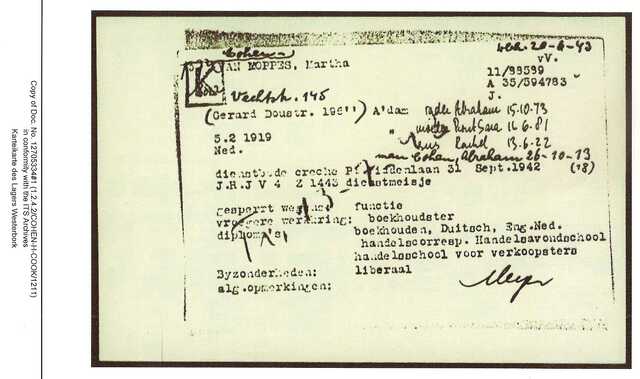 Copy of Doc. No. 12705334#1 (1.2.4.2/COHEN-H-COOK/1211)
in conformity with the ITS Archives
Karteikarte des Lagers Westerbork
Cohen
VAN MOPPES, Martha
20-6-43
vV.
11/88589
A 35/594783
J.
K
Vechtstr. 145
(Gerard Doustr. 196") A'dam
vader Abraham 15.10.73
" moeder 16.6.81
zus Rachel 13.6.22
5.2 1919
man Cohen, Abraham 26-10-13
Ned.
(18)
dienstbode creche Pl 31 Sept.1942
J.R.J V 4 Z 1443 dienstmeisje
gesperrt wegens: functie
vroegere werkkring: boekhoudster
diploma's: boekhouden, Duitsch, Eng.Ned.
handelscorresp. Handelsavondschool
handelsschool voor verkoopsters
Byzonderheden: liberaal
alg.opmerkingen: